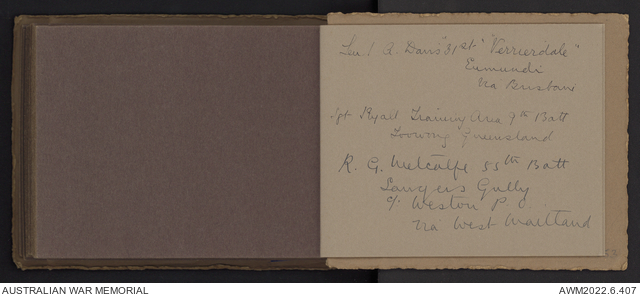 A. Davis 31st "Verrierdale"
Eumundi
Via Brisbane
Spt Ryall Training Area 9th Batt
Toowong Queensland
R. G. Metcalfe 55th Batt
Sawyers Gully
c/. Weston P.O.
via West Maitland
AUSTRALIAN WAR MEMORIAL
AWM2022.6.407